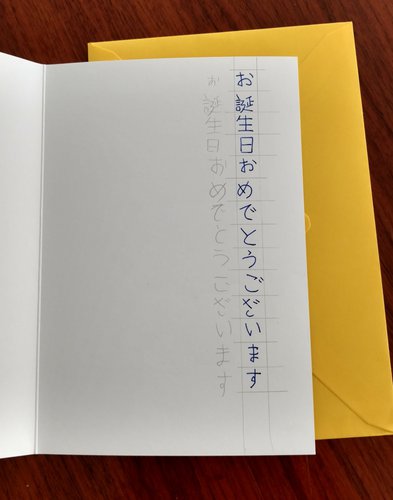 お誕生日おめでとうございます
お誕生日おめでとうございます